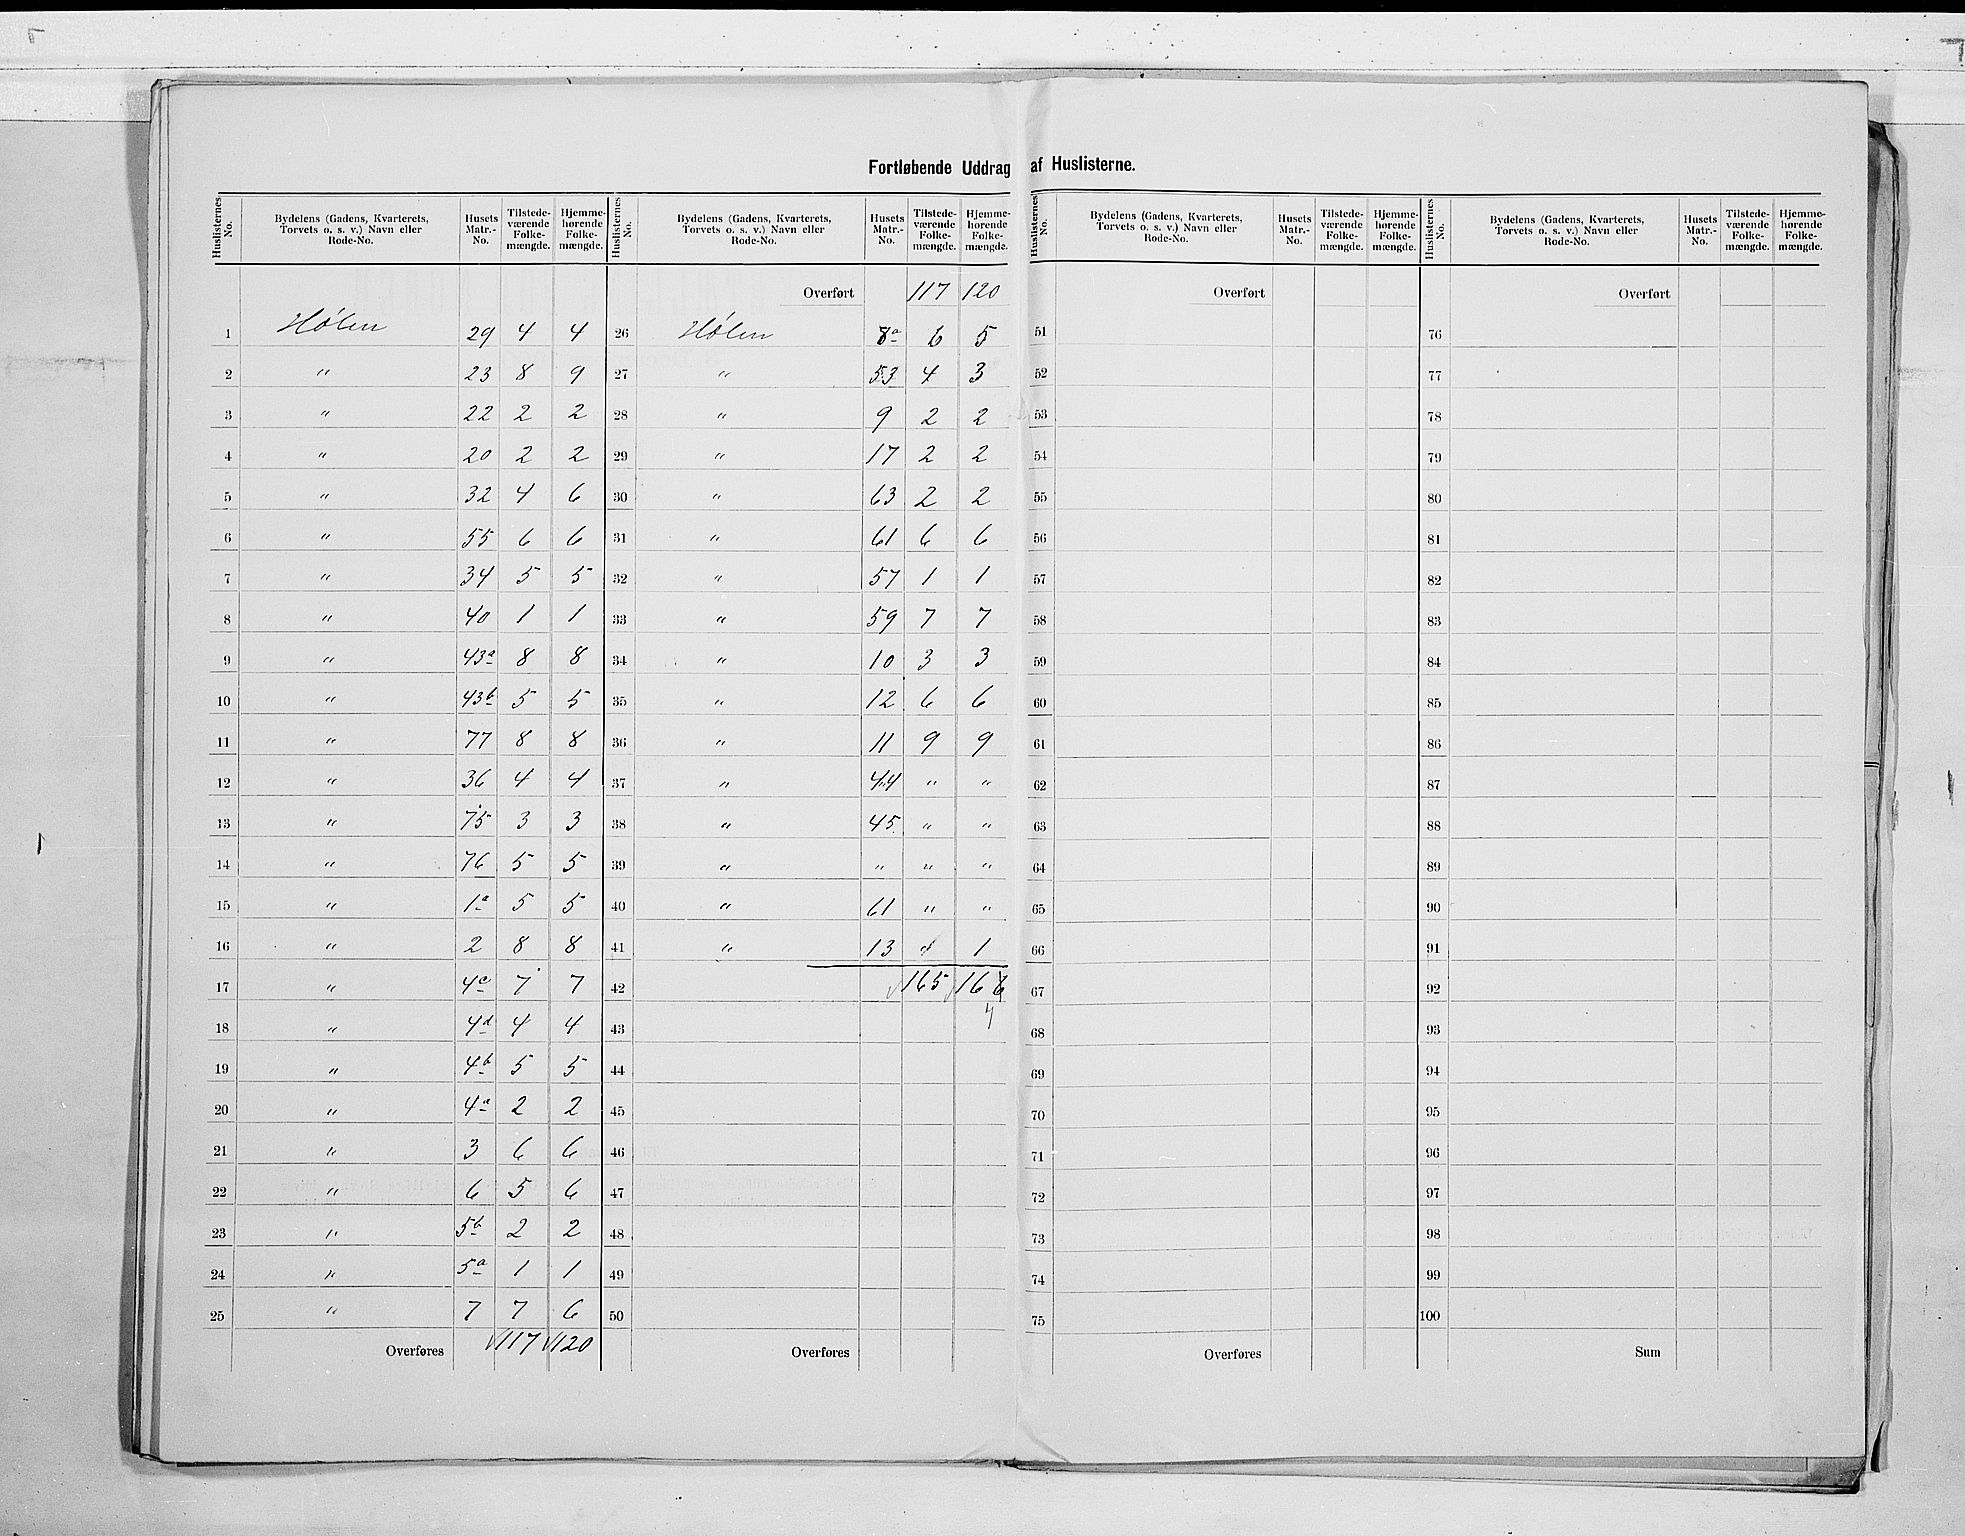 Fortløbende Uddrag af Huslisterne.
Huslisternes No. | Bydelens (Gadens, Kvarterets, Torvets o. s. v.) Navn eller Rode-No. | Husets Matr.-No. | Tilstedeværende Folkemængde. | Hjemmehørende Folkemængde. | Huslisternes No. | Bydelens (Gadens, Kvarterets, Torvets o. s. v.) Navn eller Rode-No. | Husets Matr.-No. | Tilstedeværende Folkemængde. | Hjemmehørende Folkemængde. | Huslisternes No. | Bydelens (Gadens, Kvarterets, Torvets o. s. v.) Navn eller Rode-No. | Husets Matr.-No. | Tilstedeværende Folkemængde. | Hjemmehørende Folkemængde. | Huslisternes No. | Bydelens (Gadens, Kvarterets, Torvets o. s. v.) Navn eller Rode-No. | Husets Matr.-No. | Tilstedeværende Folkemængde. | Hjemmehørende Folkemængde.
Overført 117 120 Overført Overført
1 Hølen 29 4 4 26 Hølen 8a 6 5 51 76
2 " 23 8 9 27 " 53 4 3 52 77
3 " 22 2 2 28 " 9 2 2 53 78
4 " 20 2 2 29 " 17 2 2 54 79
5 " 32 4 6 30 " 63 2 2 55 80
6 " 55 6 6 31 " 61 6 6 56 81
7 " 34 5 5 32 " 57 1 1 57 82
8 " 40 1 1 33 " 59 7 7 58 83
9 " 43a 8 8 34 " 10 3 3 59 84
10 " 43b 5 5 35 " 12 6 6 60 85
11 " 77 8 8 36 " 11 9 9 61 86
12 " 36 4 4 37 " 44 " " 62 87
13 " 75 3 3 38 " 45 " " 63 88
14 " 76 5 5 39 " " " " 64 89
15 " 1a 5 5 40 " 61 " " 65 90
16 " 2 8 8 41 " 13 1 66 91
17 " 4c 7 7 42 165 166 67 92
4
18 " 4d 4 4 43 68 93
19 " 4b 5 5 44 69 94
20 " 4a 2 2 45 70 95
21 " 3 6 6 46 71 96
22 " 6 5 6 47 72 97
23 " 5b 2 2 48 73 98
24 " 5a 1 1 49 74 99
25 " 7 7 6 50 75 100
Overføres 117 120 Overføres Overføres Sum